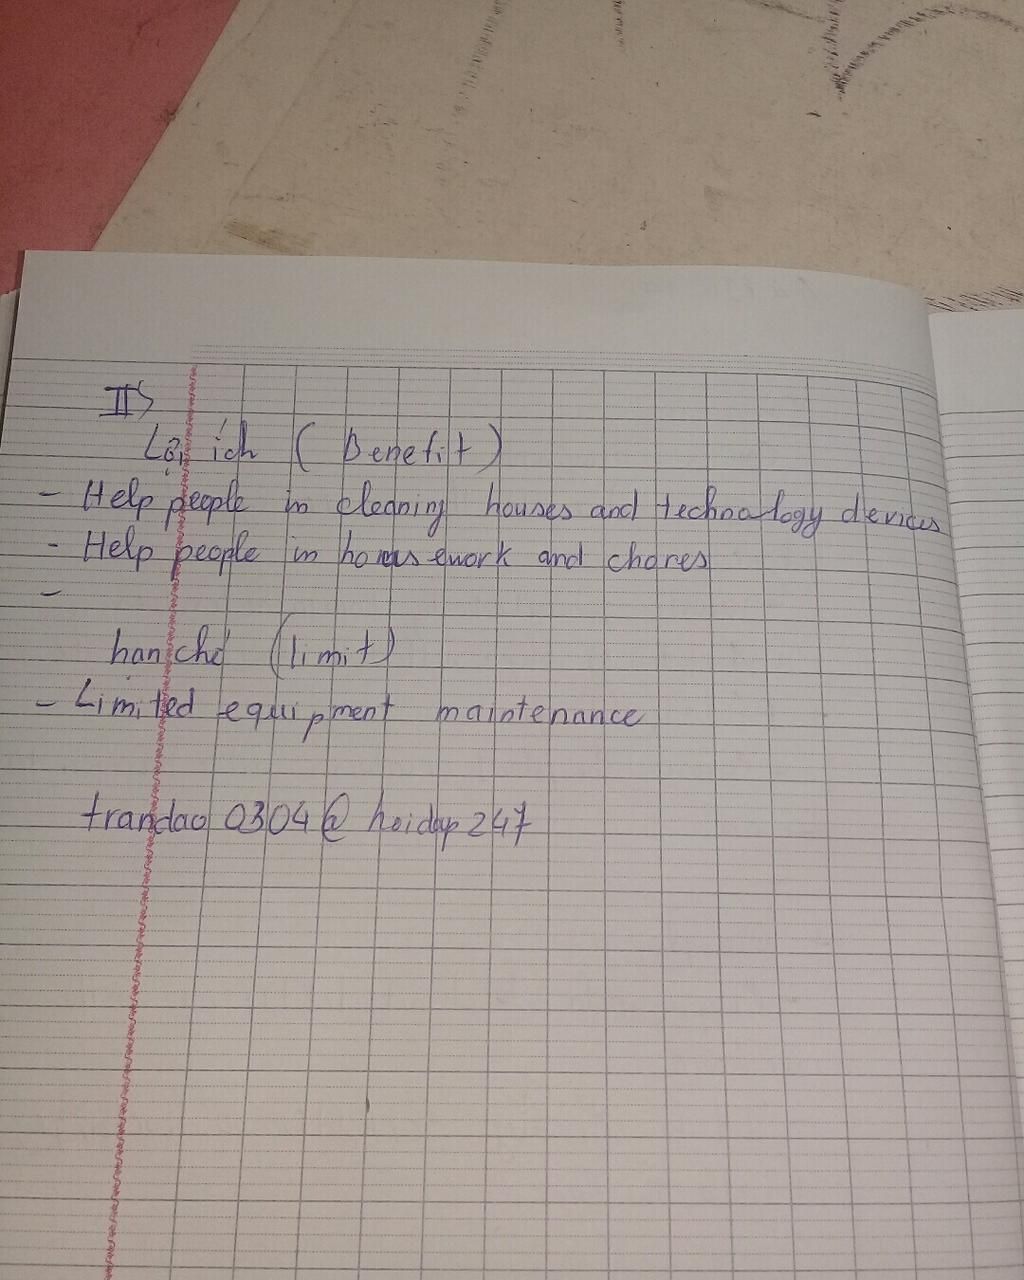 II)
Lợi ích (Benefit)
- Help people in cleaning houses and technology devices
- Help people in housework and chores
-
hạn chế (limit)
- Limited equipment maintenance
trandao 0304@hoidap247